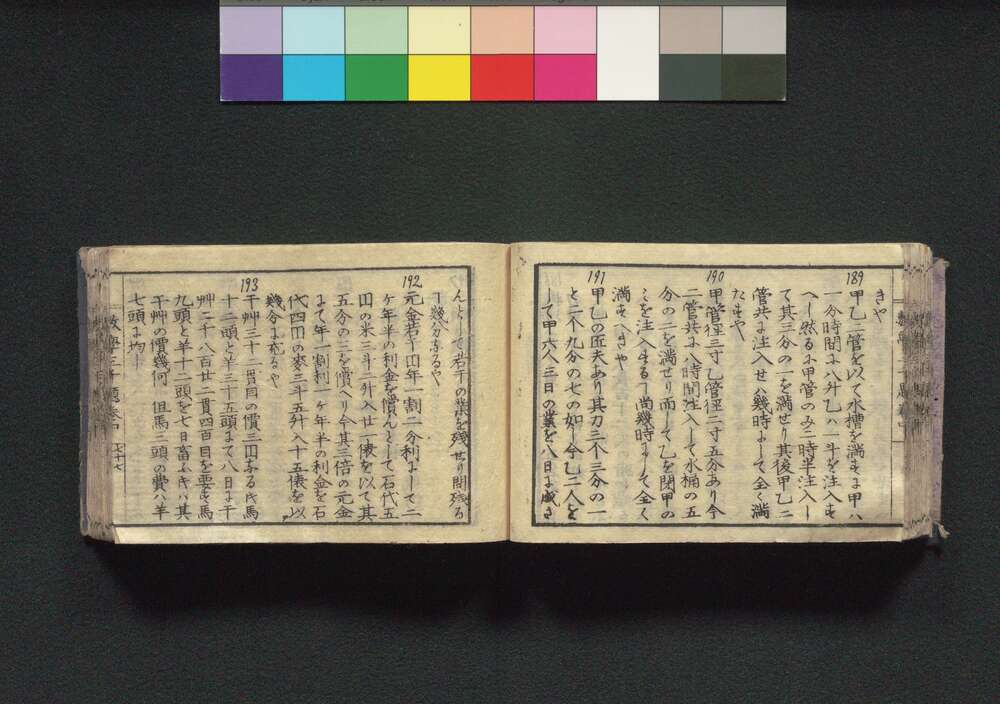 きや
189
甲乙二管を以て水槽を満すに甲ハ
一分時間に八升乙ハ一斗を注入す
へし然るに甲管のみ二時半注入し
て其三分の一を満せり其後甲乙二
管共に注入せハ幾時にして全く満
たすや
190
甲管径三寸乙管径二寸五分あり今
二管共に八時間注入して水桶の五
分の二を満せり而して乙を閉甲の
ミを注入する丁尚幾時にして全く
満すへきや
191
甲乙の匠夫あり其力三个三分の一
と二个九分の七の如し今乙二人を
して甲六人三日の業を八日に成さ
んとして若干の業を残せり問残る
丁幾分なるや
192
元金若干円年一割二分利にして二
ケ年半の利金を償んとして石代五
円の米三斗二升入廿一俵を以て其
五分の三を償へり今其三倍の元金
にて年一割利一ケ年半の利金を石
代四円の麦三斗五升入十五俵を以
幾分に充るや
193
干艸三十二貫目の價三円なる氏馬
十二頭と羊三十五頭にて八日に干
艸二千八百廿二貫四百目を要す馬
九頭と羊十二頭を七日畜ふ氏ハ其
干艸の價幾何 但馬三頭の費ハ羊
七頭に均し
七十七